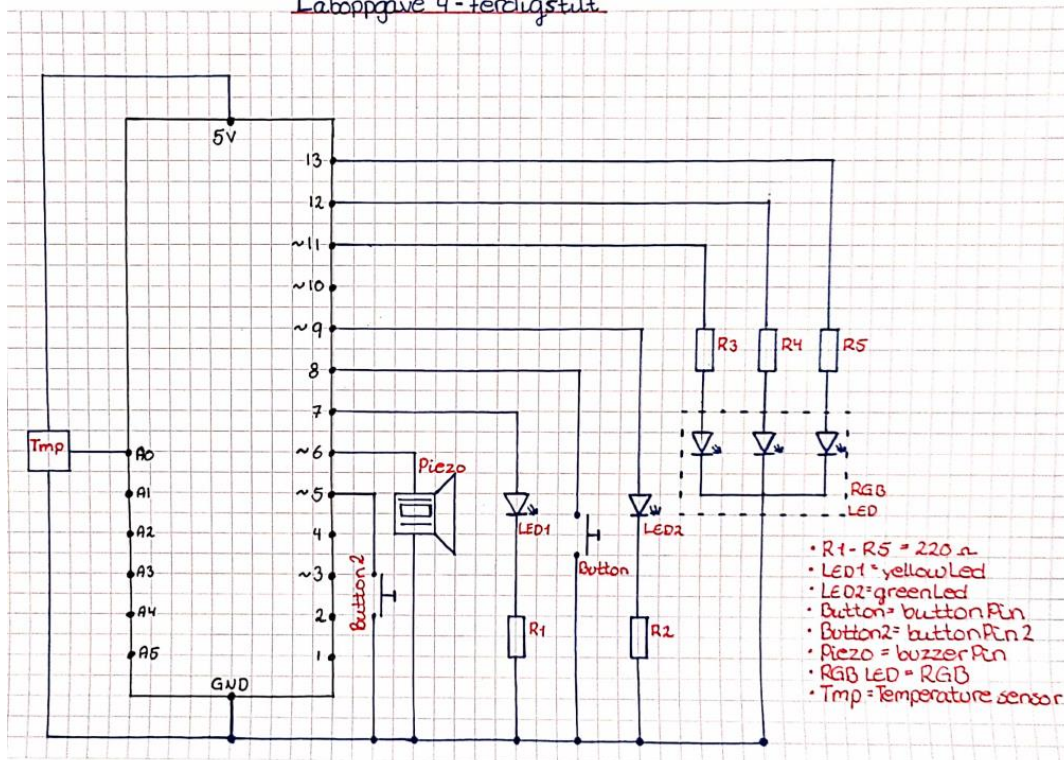 Laboppgave 4 - ferdigstilt
5V
13
12
~11
~10
~9
8
7
~6
~5
4
~3
2
1
Tmp
A0
A1
A2
A3
A4
A5
GND
Piezo
Button2
LED1
R1
Button
LED2
R2
R3
R4
R5
RGB
LED
• R1-R5 = 220 Ω
• LED1 = yellowLed
• LED2 = greenLed
• Button = buttonPin
• Button2 = buttonPin 2
• Piezo = buzzerPin
• RGB LED = RGB
• Tmp = Temperature sensor